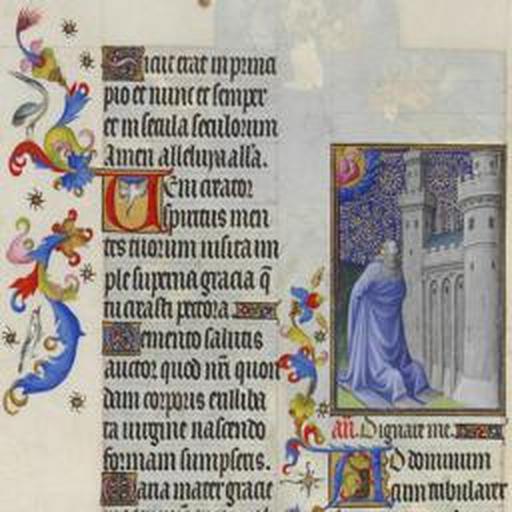 Sicut erat in princi
pio et nunc et semper
et in secula seculorum
Amen alleluya alla.
Veni creator
spiritus men
tes tuorum visita im
ple superna gracia q̃
tu creasti pectora
Memento salutis
auctor quod nr̃i quon
dam corporis ex illiba
ta virgine nascendo
formam sumpseris.
Maria mater gracie
añ. Dignare me.
AD dominum
cum tribularer